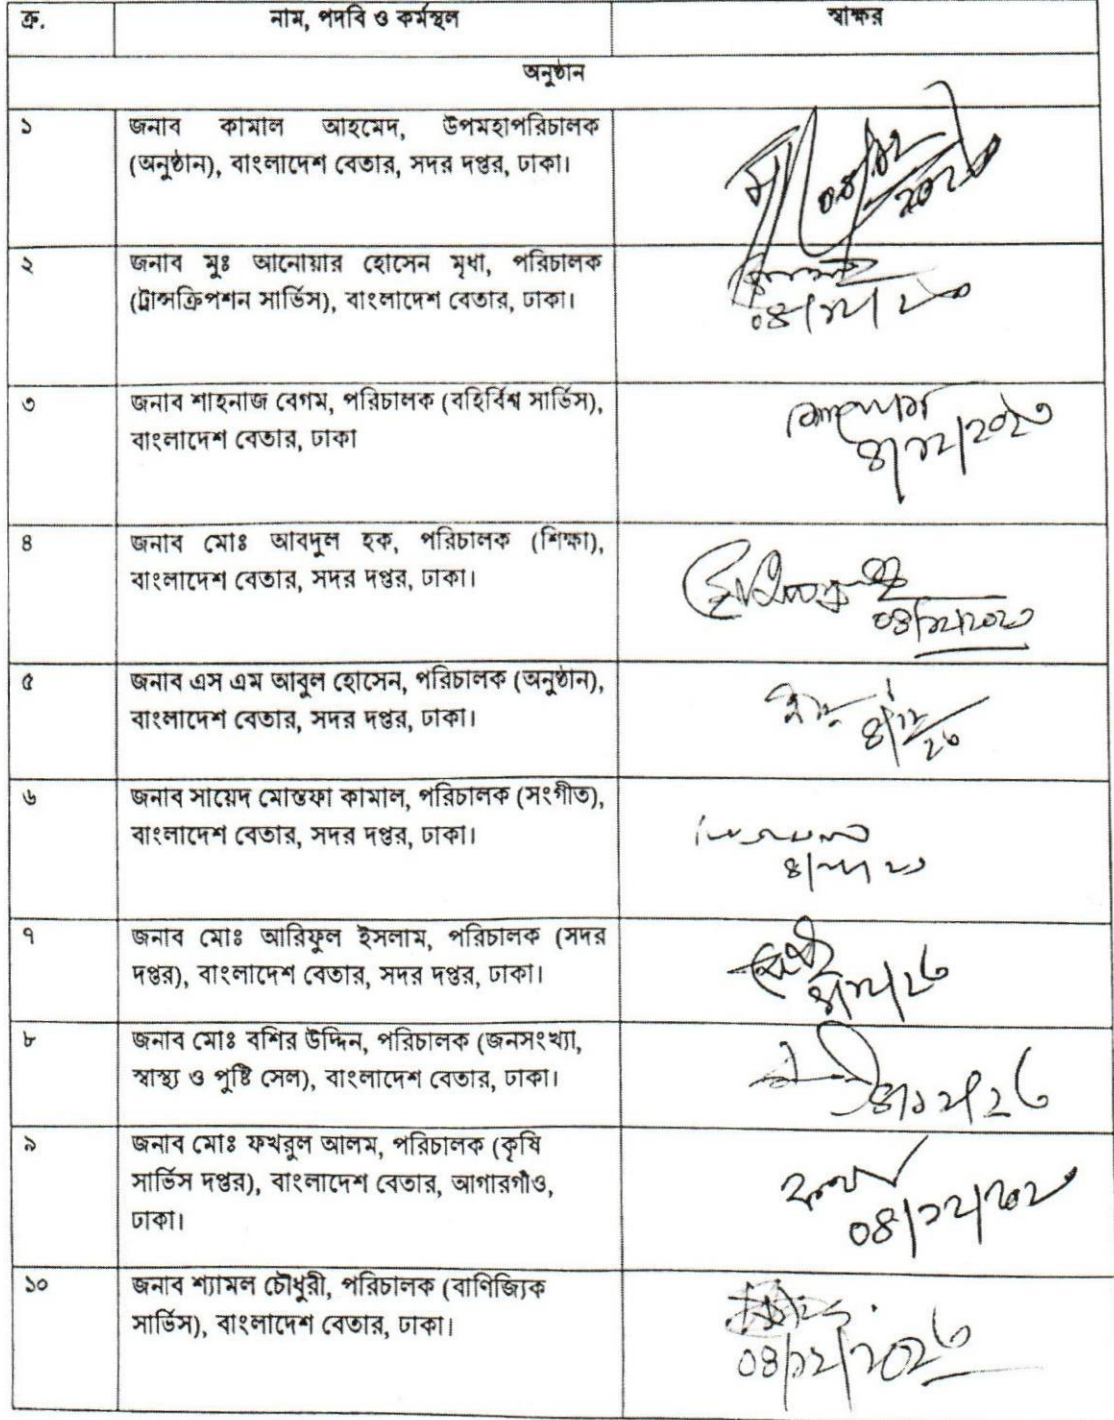 ক্র. নাম, পদবি ও কর্মস্থল স্বাক্ষর
অনুষ্ঠান
১ জনাব কামাল আহমেদ, উপমহাপরিচালক
(অনুষ্ঠান), বাংলাদেশ বেতার, সদর দপ্তর, ঢাকা।
২ জনাব মুঃ আনোয়ার হোসেন মৃধা, পরিচালক
(ট্রান্সক্রিপশন সার্ভিস), বাংলাদেশ বেতার, ঢাকা।
৩ জনাব শাহনাজ বেগম, পরিচালক (বহির্বিশ্ব সার্ভিস),
বাংলাদেশ বেতার, ঢাকা
৪/১২/২০২৩
৪ জনাব মোঃ আবদুল হক, পরিচালক (শিক্ষা),
বাংলাদেশ বেতার, সদর দপ্তর, ঢাকা।
০৪/১২/২০২৩
৫ জনাব এস এম আবুল হোসেন, পরিচালক (অনুষ্ঠান),
বাংলাদেশ বেতার, সদর দপ্তর, ঢাকা।
৪/১২/২৩
৬ জনাব সায়েদ মোস্তফা কামাল, পরিচালক (সংগীত),
বাংলাদেশ বেতার, সদর দপ্তর, ঢাকা।
৭ জনাব মোঃ আরিফুল ইসলাম, পরিচালক (সদর
দপ্তর), বাংলাদেশ বেতার, সদর দপ্তর, ঢাকা।
৪/১২/২৩
৮ জনাব মোঃ বশির উদ্দিন, পরিচালক (জনসংখ্যা,
স্বাস্থ্য ও পুষ্টি সেল), বাংলাদেশ বেতার, ঢাকা।
৪/১২/২৩
৯ জনাব মোঃ ফখরুল আলম, পরিচালক (কৃষি
সার্ভিস দপ্তর), বাংলাদেশ বেতার, আগারগাঁও,
ঢাকা।
১০ জনাব শ্যামল চৌধুরী, পরিচালক (বাণিজ্যিক
সার্ভিস), বাংলাদেশ বেতার, ঢাকা।
০৪/১২/২০২৩